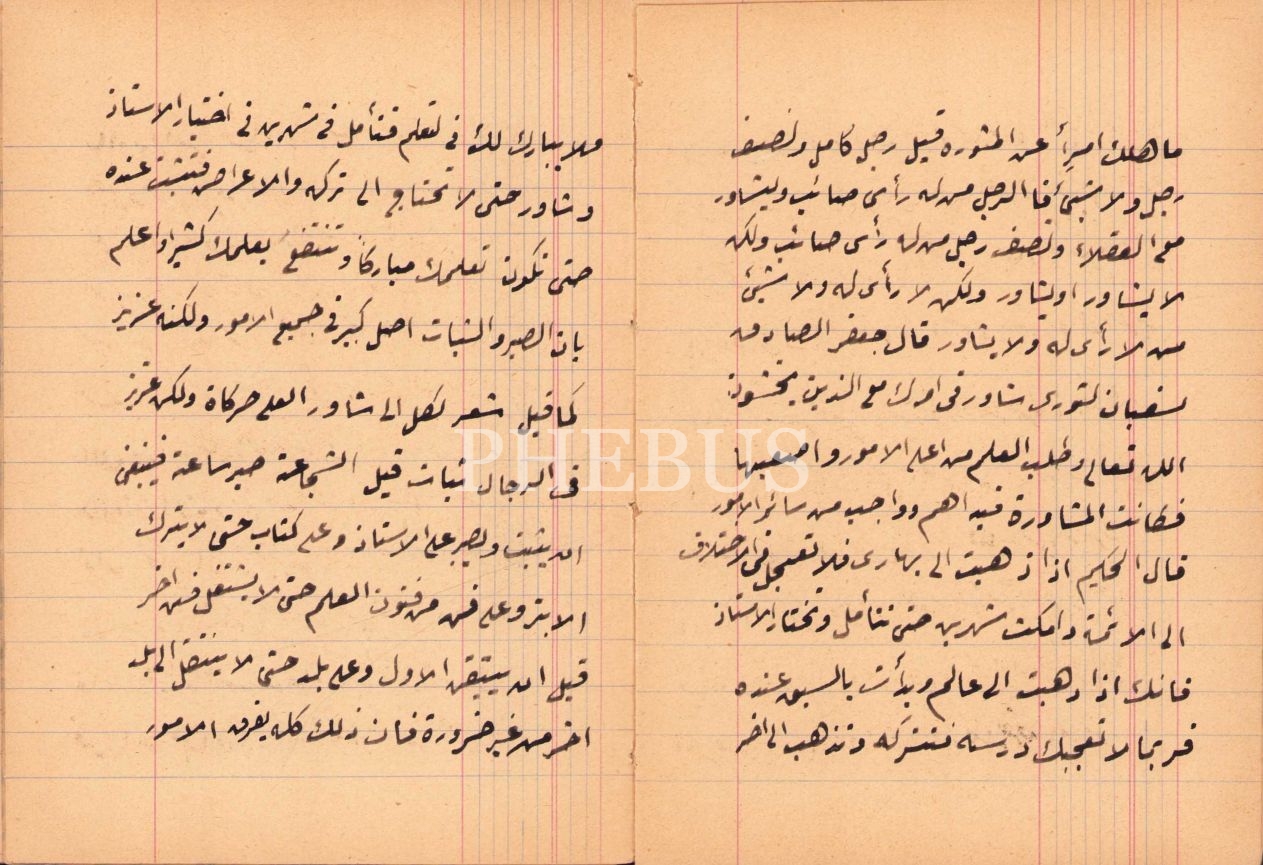 ما هلك امرأ عن المشوره قيل رجل كامل ونصف
رجل ولا شيئ فا الرجل من له رأى صائب ويشاور
مع العقلاء ونصف رجل من له رأى صائب ولكن
لا يشاور او يشاور ولكن لا رأى له ولا شيئ
من لا رأى له ولا يشاور قال جعفر الصادق
لسفيان لثورى شاور فى امرك مع الذين يخشون
الله تعالى وطلب العلم من اعلى الامور واصعبها
فكانت المشاورة فيه اهم وواجب من سائر الامور
قال الحكيم اذا ذهبت الى بهارى فلا تعجل فى الاختلاف
الى الائمة وامكث شهرين حتى تتأمل وتختار الاستاذ
فانك اذا ذهبت الى عالم وبدأت بالسبق عنده
فربما لا تعجبك درسه فتتركه وتذهب الى اخر
فلا يبارك لك فى لتعلم فتأمل فى شهرين فى اختيار الاستاذ
وشاور حتى لا تحتاج الى تركه والاعراض فتثبت عنده
حتى تكون تعلمك مباركا وتنتفع بعلمك كثيرا واعلم
بان الصبر والثبات اصل كبير فى جميع الامور ولكنه عزيز
كما قيل شعر لكل الى شاور العلى حركاة ولكن عزيز
فى الرجال ثبات قيل الشجاعة صبر ساعة فينبغى
ان يثبت ويصبر على الاستاذ وعلى كتاب حتى لا يترك
الابتر وعلى فن من فنون العلم حتى لا يشتغل فن اخر
قبل ان يتيقن الاول وعلى بلد حتى لا ينتقل الى بلد
اخر من غير ضرورة فان ذلك كله يفرق الامور
PHEBUS